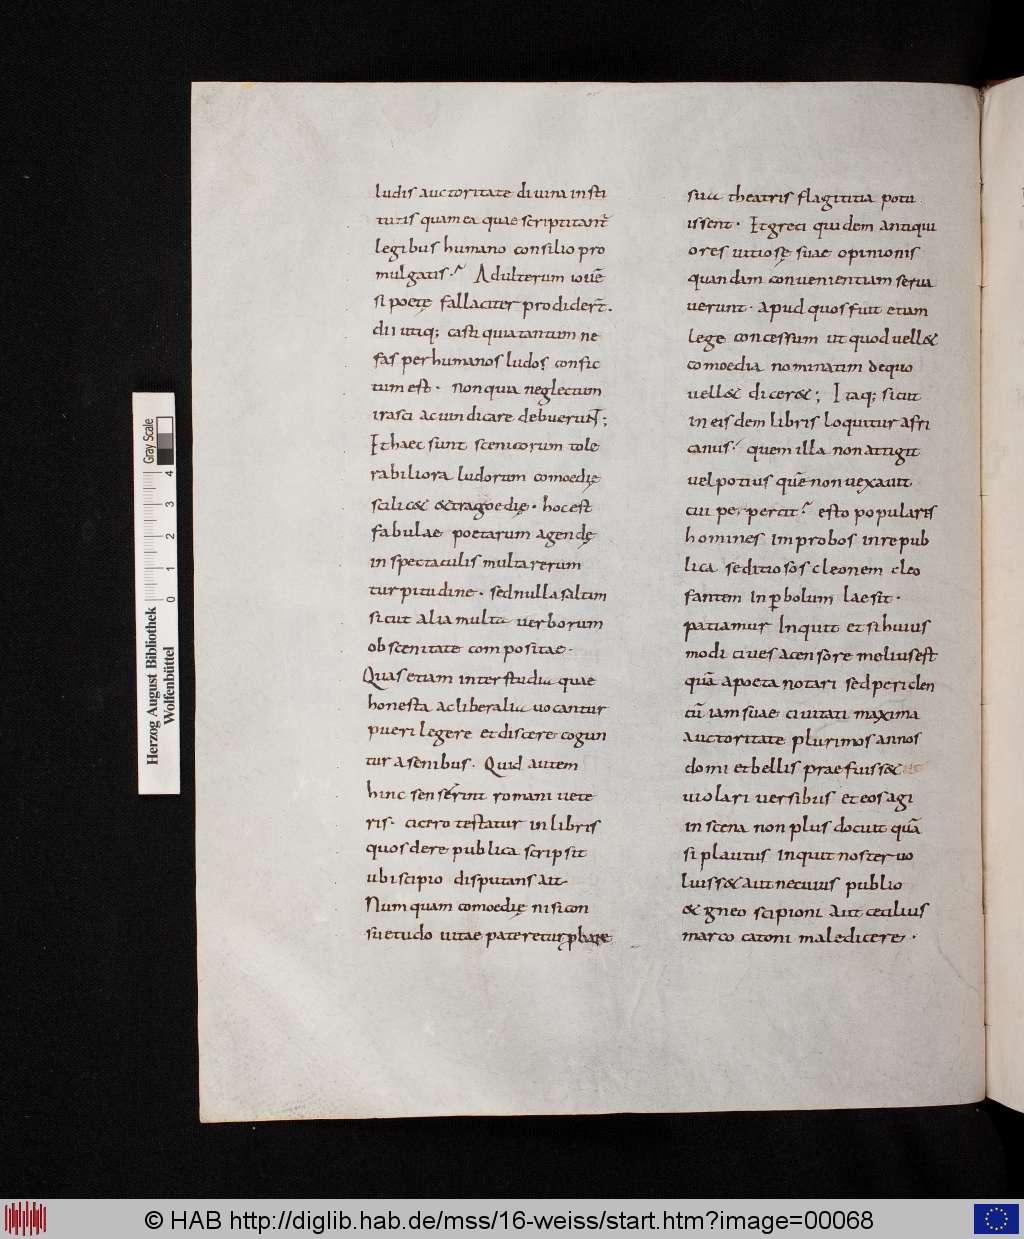 ludis auctoritate diuina insti
tutis quam ea quae scriptitant̄
legibus humano consilio pro
mulgatis·? Adulterum iouē
si poetę fallaciter prodider̄t·
dii utiq; casti quia tantum ne
fas per humanos ludos confic
tum est· non quia neglectum
irasci ac uindicare debuerunt;
Et haec sunt scenicorum tole
rabiliora ludorum comoedię
scilic& &tragoedię· hoc est
fabulae poetarum agendę
in spectaculis multa rerum
turpitudine· sed nulla saltim
sicut alia multa uerborum
obscenitate compositae·
Quas etiam inter studia quae
honesta ac liberalia uocantur
pueri legere et discere cogun
tur a senibus· Quid autem
hinc senserint romani uete
ris· cicero testatur in libris
quos de re publica scripsit
ubi scipio disputans ait
Numquam comoedię nisi con
suetudo uitae pateretur ꝓbare
sua theatris flagititia potu
issent· Et greci quidem antiqui
ores uitiosę suae opinionis
quandam conuenientiam serua
uerunt· apud quos fuit etiam
lege concessum ut quod uell&
comoedia nominatim de quo
uell& dicer&; Itaq; sicut
in eisdem libris loquitur afri
canus· quem illa non attigit
uel potius quē non uexauit
cui perpercit? esto popularis
homines improbos in re pub
lica seditiosos cleonem cleo
fantem inꝑbolum laesit·
patiamur Inquit et si huius
modi ciues a censore melius est
quā a poeta notari sed periclen
cū iam suae ciuitati maxima
auctoritate plurimos annos
domi et bellis praefuiss&
uiolari uersibus et eos agi
in scena non plus docuit quā
si plautus Inquit noster uo
luiss& aut neuius publio
& gneo scipioni aut cecilius
marco catoni maledicere·
Gray Scale
0 1 2 3 4
Herzog August Bibliothek
Wolfenbüttel
© HAB http://diglib.hab.de/mss/16-weiss/start.htm?image=00068